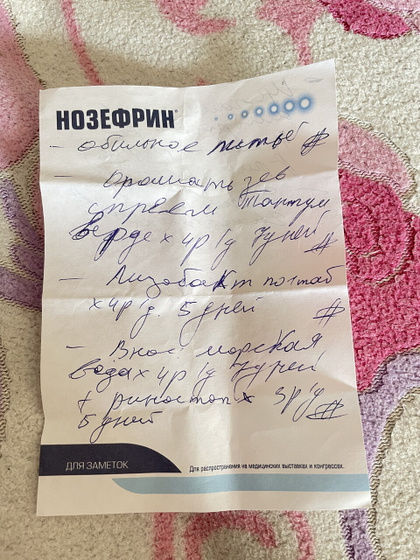 НОЗЕФРИН
- обильное питьё #
- Орошать зев
спреем Тантум
Верде х 4р/д 7дней #
- Лизобакт по 1таб
х4р/д. 5дней #
- В нос: морская
вода х 4р/д 7дней
+ риностоп х 3р/д #
5 дней
ДЛЯ ЗАМЕТОК
Для распространения на медицинских выставках и конгрессах.